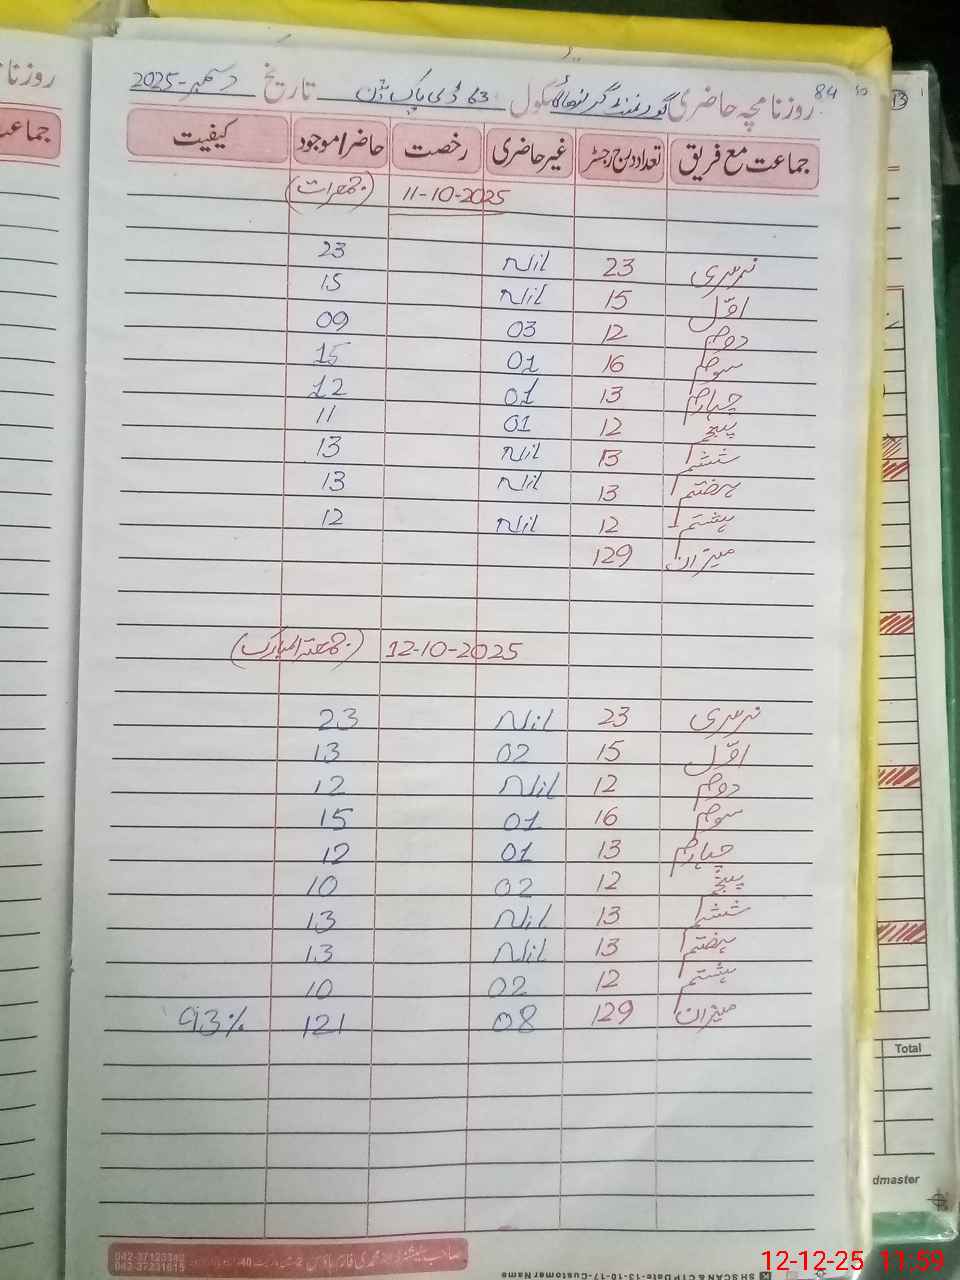 84
روزنامچہ حاضری گورنمنٹ گرلز ہائی سکول 63 ڈی پاکپتن تاریخ دسمبر-2025
جماعت مع فریق تعداد درج رجسٹر غیر حاضری رخصت حاضر/موجود کیفیت
11-10-2025 (جمعرات)
نرسری 23 Nil 23
اوّل 15 Nil 15
دوم 12 03 09
سوم 16 01 15
چہارم 13 01 12
پنجم 12 01 11
ششم 13 Nil 13
ہفتم 13 Nil 13
ہشتم 12 Nil 12
میزان 129
12-10-2025 (جمعۃ المبارک)
نرسری 23 Nil 23
اوّل 15 02 13
دوم 12 Nil 12
سوم 16 01 15
چہارم 13 01 12
پنجم 12 02 10
ششم 13 Nil 13
ہفتم 13 Nil 13
ہشتم 12 02 10
میزان 129 08 121 93%
042-37123342
042-37231615
روزنا
جماعت
13
Total
dmaster
12-12-25 11:59